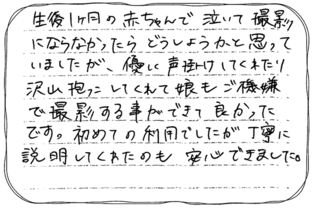 生後1ヶ月の赤ちゃんで泣いて撮影
にならなかったらどうしようかと思って
いましたが、優しい声掛けしてくれたり
沢山抱っこしてくれて娘もご機嫌
で撮影する事ができて良かった
です。初めての利用でしたが丁寧に
説明してくれたのも安心できました。